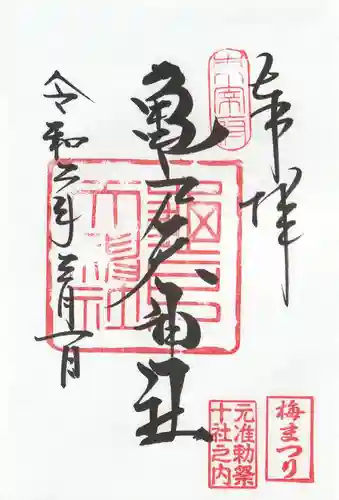 奉拝
東宰府
亀戸天神社
令和二年三月一日
梅まつり
元准勅祭
十社之内